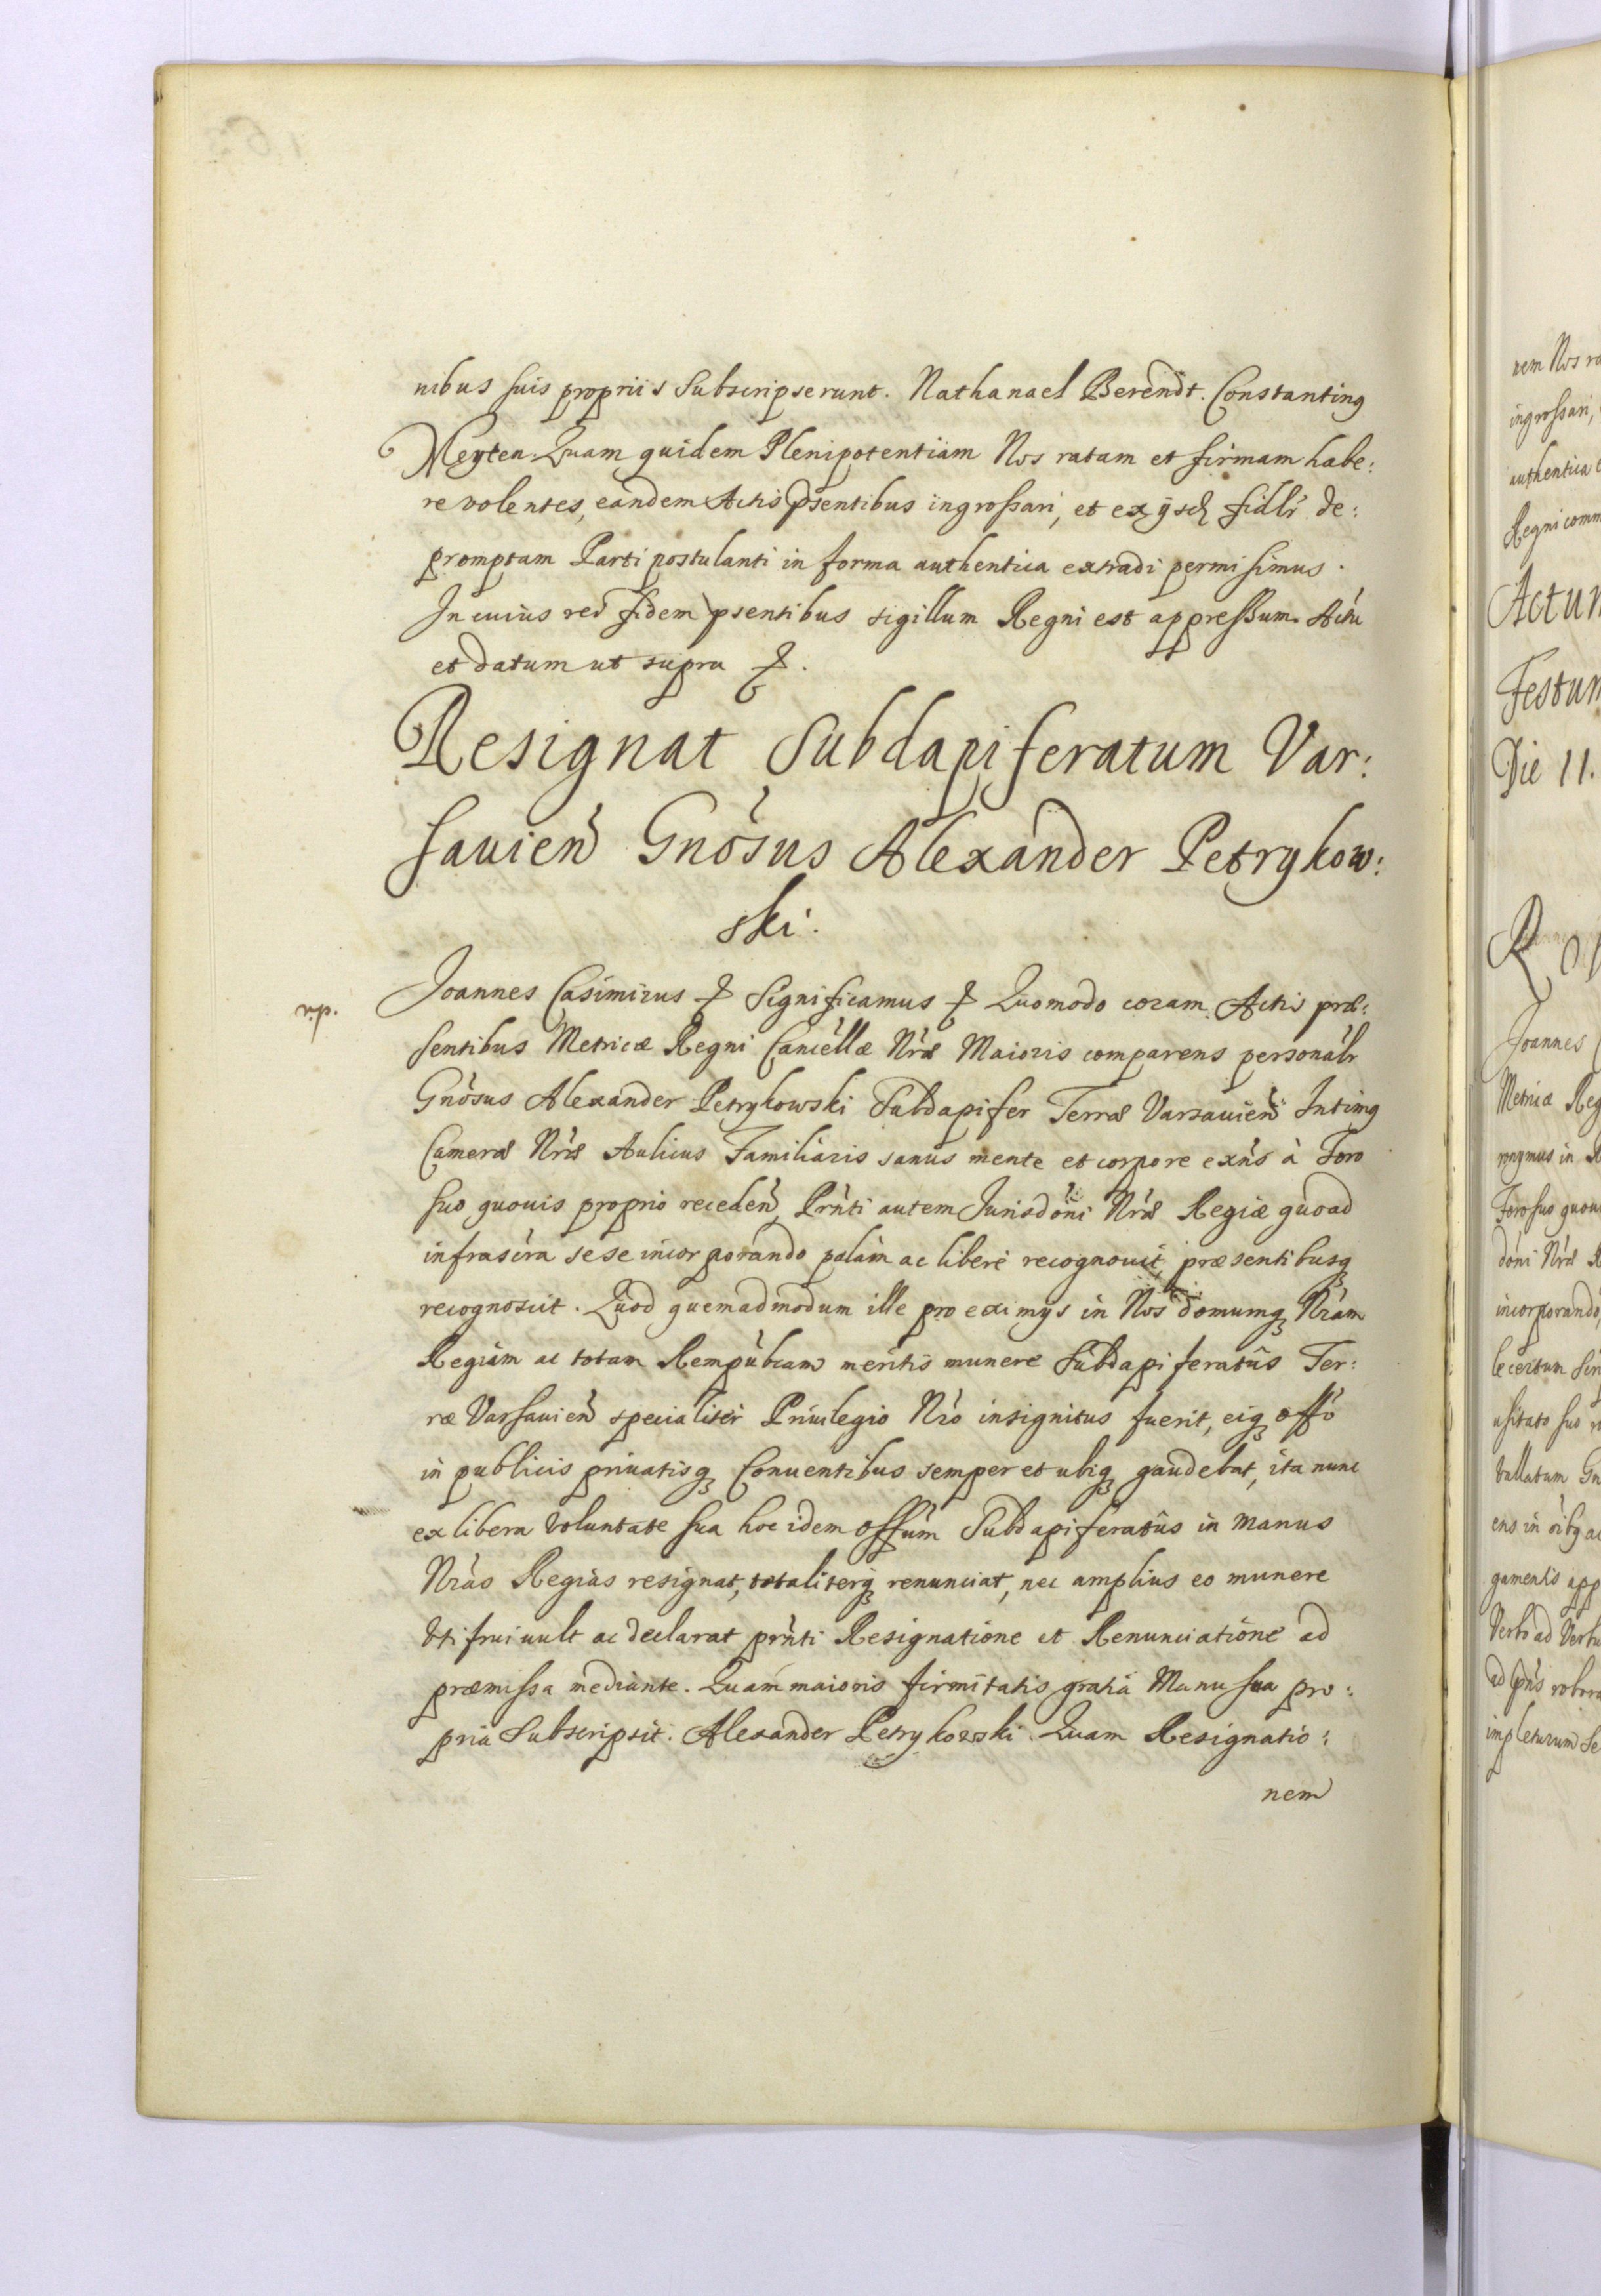 nibus suis propriis Subscripserunt. Nathanael Berendt. Constantinꝯ
Meyten. Quam quidem Plenipotentiam Nos ratam et firmam habe:
re volentes, eandem Actis pͬsentibus ingrossari, et ex ijsdͤ fidlr̀ de:
promptam Parti postulanti in forma authentica extradi permisimus.
In cuius rei fidem pͬsentibus sigillum Regni est appressum. Actu
et datum ut supra &.
Resignat Subdapiferatum Var:
sauieǹ Gnòsus Alexander Petrykow:
ski.
Joannes Casimirus & Significamus & Quomodo coram Actis præ:
sentibus Metricæ Regni Cancèllæ Nræ̀ Maioris comparens personàlr
Gnòsus Alexander Petrykowski Subdapifer Terræ Varsauieǹ Intimꝯ
Cameræ Nræ̀ Aulicus Familiaris sanus mente et corpore exǹs à Foro
suo quouis proprio recedeǹ, Prǹti autem Jurisdòni Nræ̀ Regiæ quoad
infrascr̀a sese incorporando palàm ac liberè recognouit, præsentibusqꝫ
recognoscit. Quod quemadmodum ille pro eximijs in Nos domumqꝫ Nràm
Regiam ac totam Rempùbcam meritis munere Subdapiferatûs Ter:
ræ Varsauieǹ specialiter Priuilegio Nrò insignitus fuerit, eiqꝫ offò
in publicis priuatisqꝫ Conuentibus semper et ubiqꝫ gaudebat, ita nunc
ex libera voluntate sua hoc idem offùm Subdapiferatûs in manus
Nràs Regias resignat, totaliterqꝫ renunciat, nec amplius eo munere
Vti frui uult ac declarat prǹti Resignatione et Renunciatione ad
præmissa mediante. Quam maioris firmitatis gratiâ Manu sua pro:
pria Subscripsit. Alexander Petrykowski. Quam Resignatio:
nem